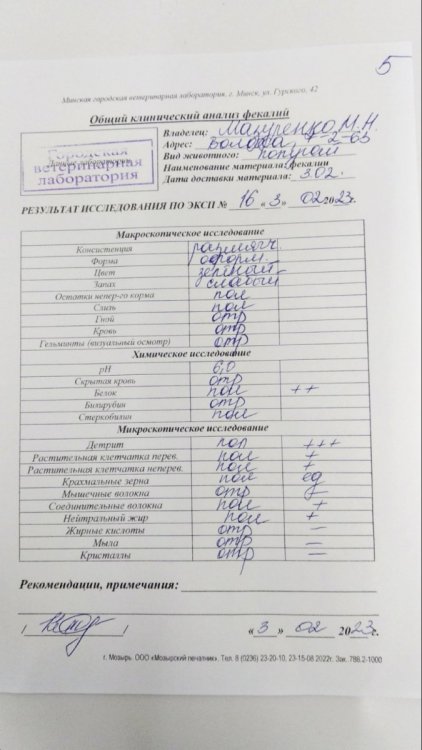 5
Минская городская ветеринарная лаборатория, г. Минск, ул. Гурского, 42
Общий клинический анализ фекалий
Городская
ветеринарная
лаборатория
Владелец: Мазуренко М.Н.
Адрес: -2-63
Вид животного: попугай
Наименование материала: фекалии
Дата доставки материала: 3.02.
РЕЗУЛЬТАТ ИССЛЕДОВАНИЯ ПО ЭКСП № 16 «3» 02 2023г.
Макроскопическое исследование
Консистенция размягч.
Форма оформ.
Цвет зеленый
Запах слабый
Остатки непер-го корма пол
Слизь пол
Гной отр
Кровь отр
Гельминты (визуальный осмотр) отр
Химическое исследование
pH 6,0
Скрытая кровь отр
Белок пол ++
Билирубин отр
Стеркобилин пол
Микроскопическое исследование
Детрит пол +++
Растительная клетчатка перев. пол +
Растительная клетчатка неперев. пол +
Крахмальные зерна пол ед
Мышечные волокна отр
Соединительные волокна пол +
Нейтральный жир пол +
Жирные кислоты отр –
Мыла отр –
Кристаллы отр –
Рекомендации, примечания:
/ / «3» 02 2023г.
г. Мозырь. ООО «Мозырский печатник». Тел. 8 (0236) 23-20-10, 23-15-08 2022г. Зак. 786.2-1000